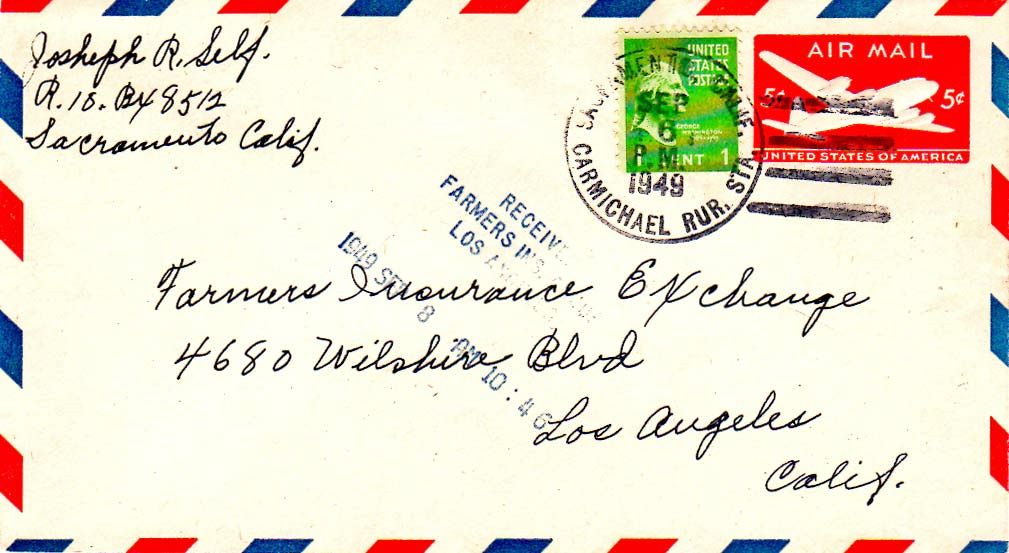 Josheph R. Self.
R.10. Bx 8512
Sacramento Calif.
UNITED
STATES
POSTAGE
GEORGE
WASHINGTON
CENT 1
AIR MAIL
5¢ 5¢
UNITED STATES OF AMERICA
SACRAMENTO, CALIF.
SEP
6
P.M.
1949
CARMICHAEL RUR. STA.
RECEIVED
FARMERS INS.
LOS ANGELES
1949 SEP 8 AM 10:46
Farmers Insurance Exchange
4680 Wilshire Blvd
Los Angeles
Calif.